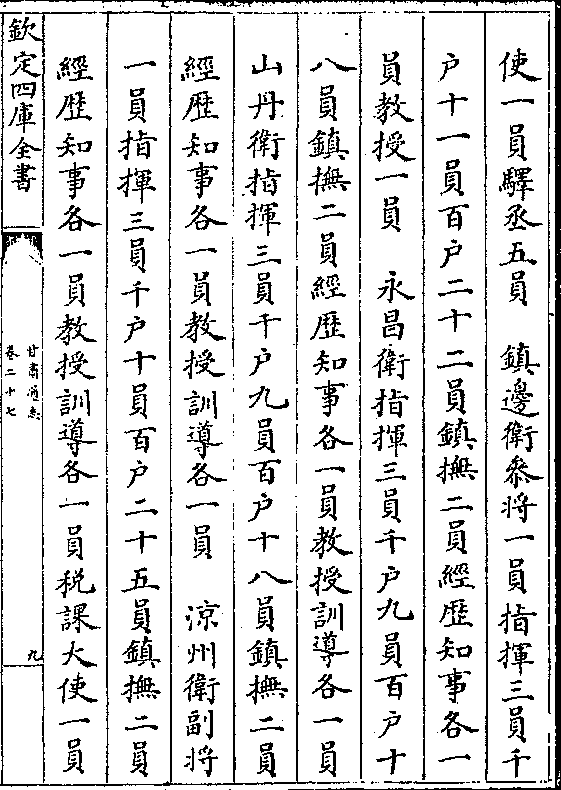 使一員驛丞五員　鎮邊衛叅將一員指揮三員千
户十一員百户二十二員鎮撫二員經歴知事各一
員教授一員　永昌衛指揮三員千户九員百户十
八員鎮撫二員經歴知事各一員教授訓導各一員
山丹衛指揮三員千户九員百户十八員鎮撫二員
經歴知事各一員教授訓導各一員　涼州衛副將
一員指揮三員千户十員百户二十五員鎮撫二員
經歴知事各一員教授訓導各一員税課大使一員
欽定四庫全書
甘肅通志
卷二十七
九